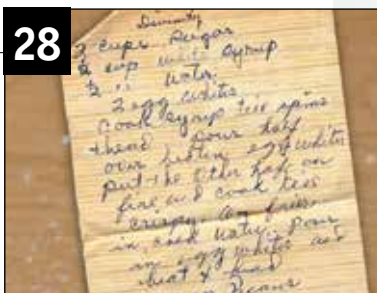 28
Divinity
3 cups sugar
½ cup white syrup
½ " water
2 egg whites
Cook syrup till spins
thead pour half
over beaten egg whites
put the other half on
fire and cook till
crispy
in cold water. Pour
in egg whites and
beat & bead